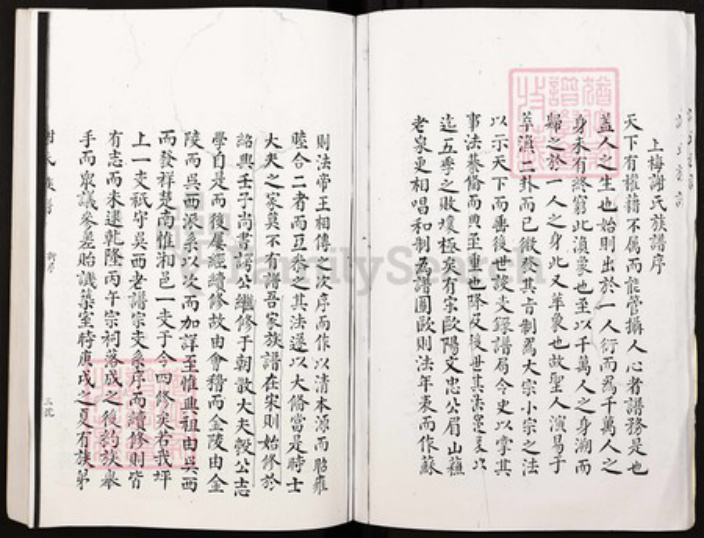 上梅謝氏族譜序
天下有權藉不屬而能管攝人心者譜務是也
蓋人之生也始則出於一人衍而為千萬人之
身未有終窮此渙象也至以千萬人之身溯而
歸之於一人之身此又萃象也故聖人演易于
萃渙二卦而已微其旨制為大宗小宗之法
以示天下而垂後世設史錄譜局令史以掌其
事法綦備而典至重也降及後世其法寖以
迄五季之敗壞極矣有宋歐陽文忠公眉山蘇
老泉更相唱和制為譜圖歐則法年表而作蘇
則法帝王相傳之次序而作以清本源而昭雍
睦合二者而互參之其法遂以大備當是時士
大夫之家莫不有譜吾家族譜在宋則始修於
紹興壬子尚書諤公繼修于朝散大夫毅公志
學自是而後屢經續修故由會稽而金陵由金
陵而吳西派系以次而加詳至惟興祖由吳西
而發祥楚南惟湘邑一支于今四修矣若我坪
上一支祇守吳西老譜宗支系序而續修則皆
有志而未逮乾隆丙午宗祠落成之後約族舉
手而眾議參差貽譏築室時庚戌之夏有族弟
謝氏族譜
FamilySearch